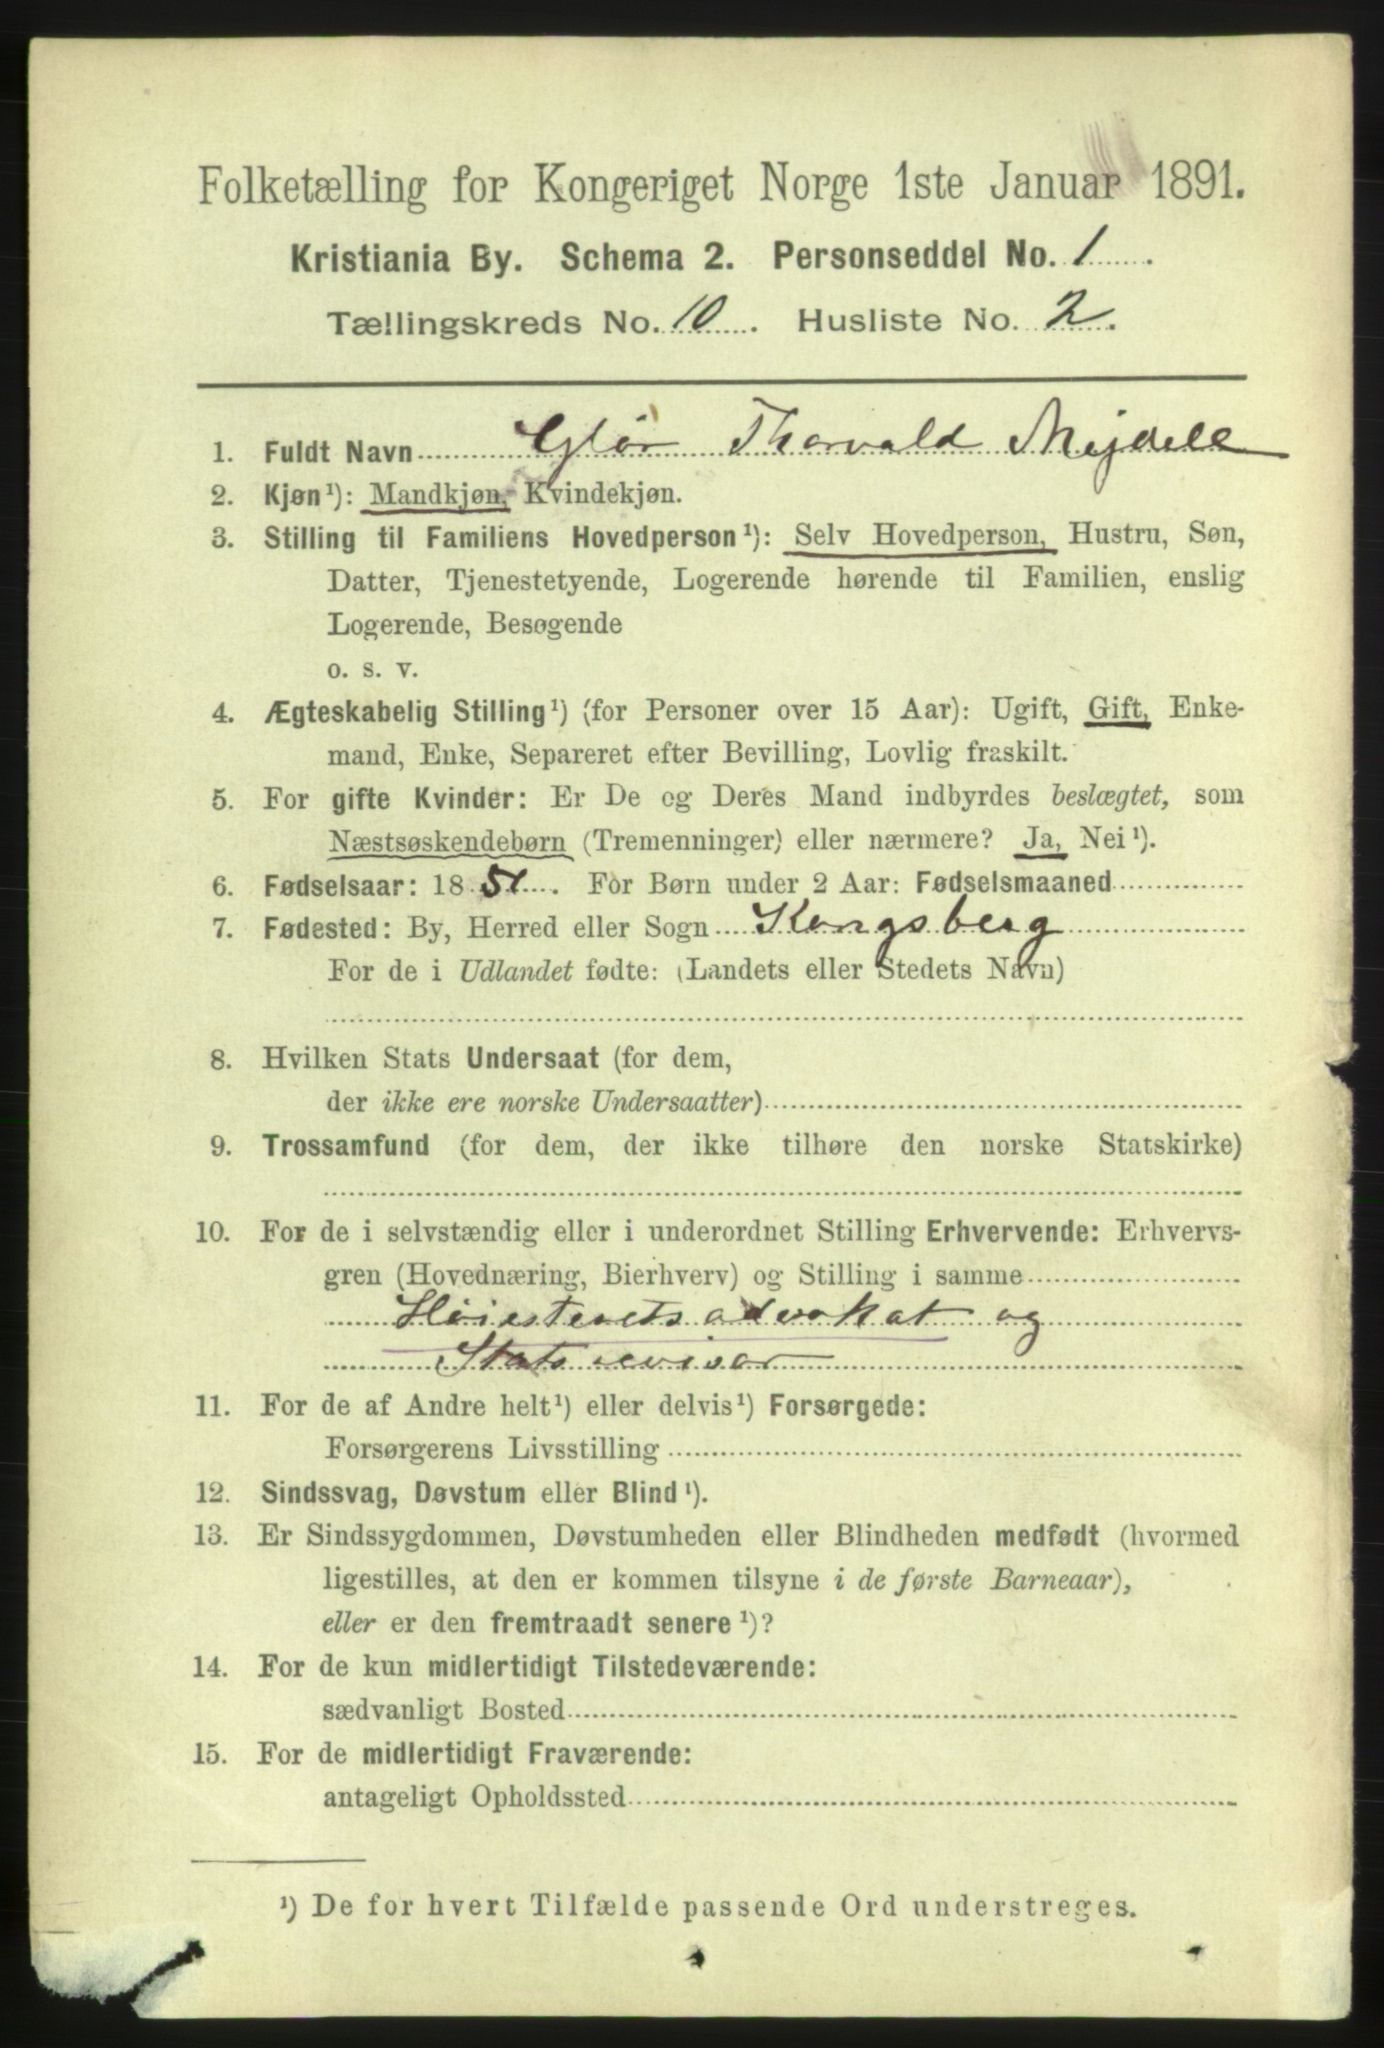 Folketælling for Kongeriget Norge 1ste Januar 1891.
Kristiania By. Schema 2. Personseddel No. 1.
Tællingskreds No. 10. Husliste No. 2.
1. Fuldt Navn Glør Thorvald Mejdell
2. Kjøn¹): Mandkjøn, Kvindekjøn.
3. Stilling til Familiens Hovedperson¹): Selv Hovedperson, Hustru, Søn,
Datter, Tjenestetyende, Logerende hørende til Familien, enslig
Logerende, Besøgende
o. s. v.
4. Ægteskabelig Stilling¹) (for Personer over 15 Aar): Ugift, Gift, Enke-
mand, Enke, Separeret efter Bevilling, Lovlig fraskilt.
5. For gifte Kvinder: Er De og Deres Mand indbyrdes beslægtet, som
Næstsøskendebørn (Tremenninger) eller nærmere? Ja, Nei¹).
6. Fødselsaar: 1851. For Børn under 2 Aar: Fødselsmaaned
7. Fødested: By, Herred eller Sogn Kongsberg
For de i Udlandet fødte: (Landets eller Stedets Navn)
8. Hvilken Stats Undersaat (for dem,
der ikke ere norske Undersaatter)
9. Trossamfund (for dem, der ikke tilhøre den norske Statskirke)
10. For de i selvstændig eller i underordnet Stilling Erhvervende: Erhvervs-
gren (Hovednæring, Bierhverv) og Stilling i samme
Høiesteretsadvokat og
Statsrevisor
11. For de af Andre helt¹) eller delvis¹) Forsørgede:
Forsørgerens Livsstilling
12. Sindssvag, Døvstum eller Blind¹).
13. Er Sindssygdommen, Døvstumheden eller Blindheden medfødt (hvormed
ligestilles, at den er kommen tilsyne i de første Barneaar),
eller er den fremtraadt senere¹)?
14. For de kun midlertidigt Tilstedeværende:
sædvanligt Bosted
15. For de midlertidigt Fraværende:
antageligt Opholdssted
¹) De for hvert Tilfælde passende Ord understreges.